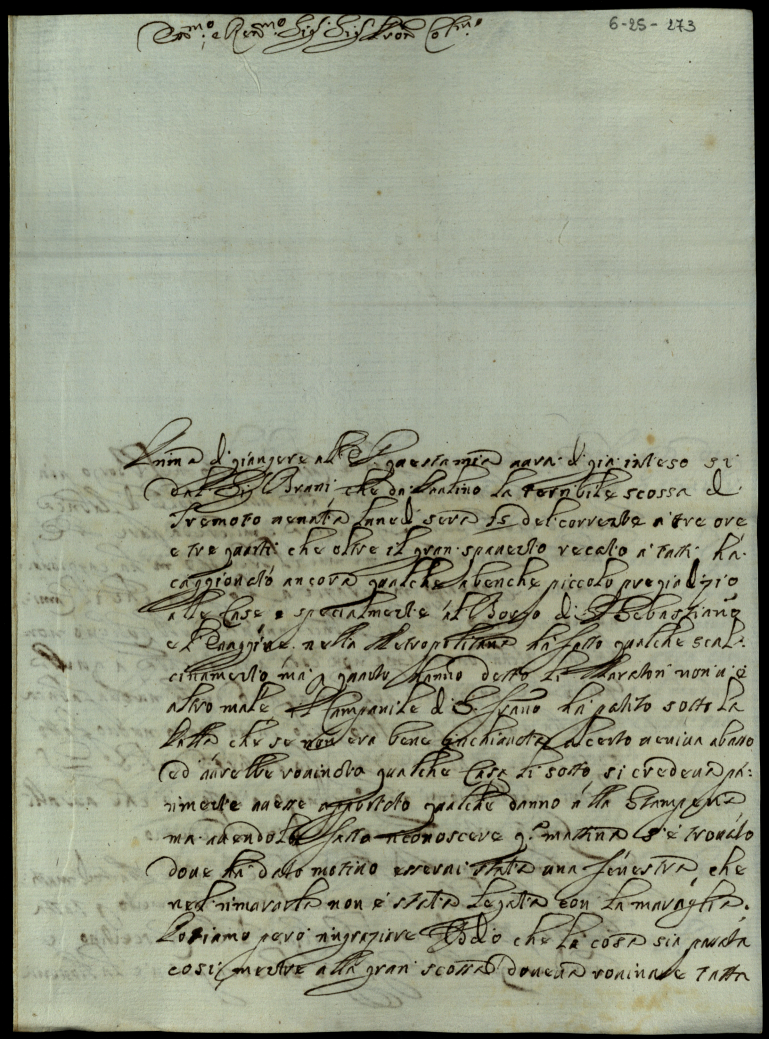 6-25-273
Ill.mo e Rev.mo Sig.r Sig.r Pron Col.mo
Prima di giungere questa mia avrà di già inteso si
dal Sig.r che da la terribile scossa di
Tremoto venuta lunedi sera 15 del corrente a tre ore
e tre quarti che oltre il gran spavento recato a tutti ha
caggionato ancora qualche abenche piccolo pregiudizio
alle Case e specialmente al Borgo di S. Sebastiano
e nella Metropolitana ha fatto qualche scal-
cinamento ma p quanto hanno detto li Muratori non vi è
altro male il Campanile di S. ha patito sotto la
Palla che se non era bene inchiavata al certo veniva abasso
ed avrebbe rovinato qualche Casa di sotto si credeva pa-
rimente avesse apportato qualche danno alla Stamperia
ma avendola fatta riconoscere q.a mattina s'è trovato
dove ha dato motivo esservi stata una fenestra che
nel rimurarla non è stata legata con la muraglia.
Possiamo però ringraziare Iddio che la cosa sia passata
così mentre alla gran scossa doveva rovinare tutta